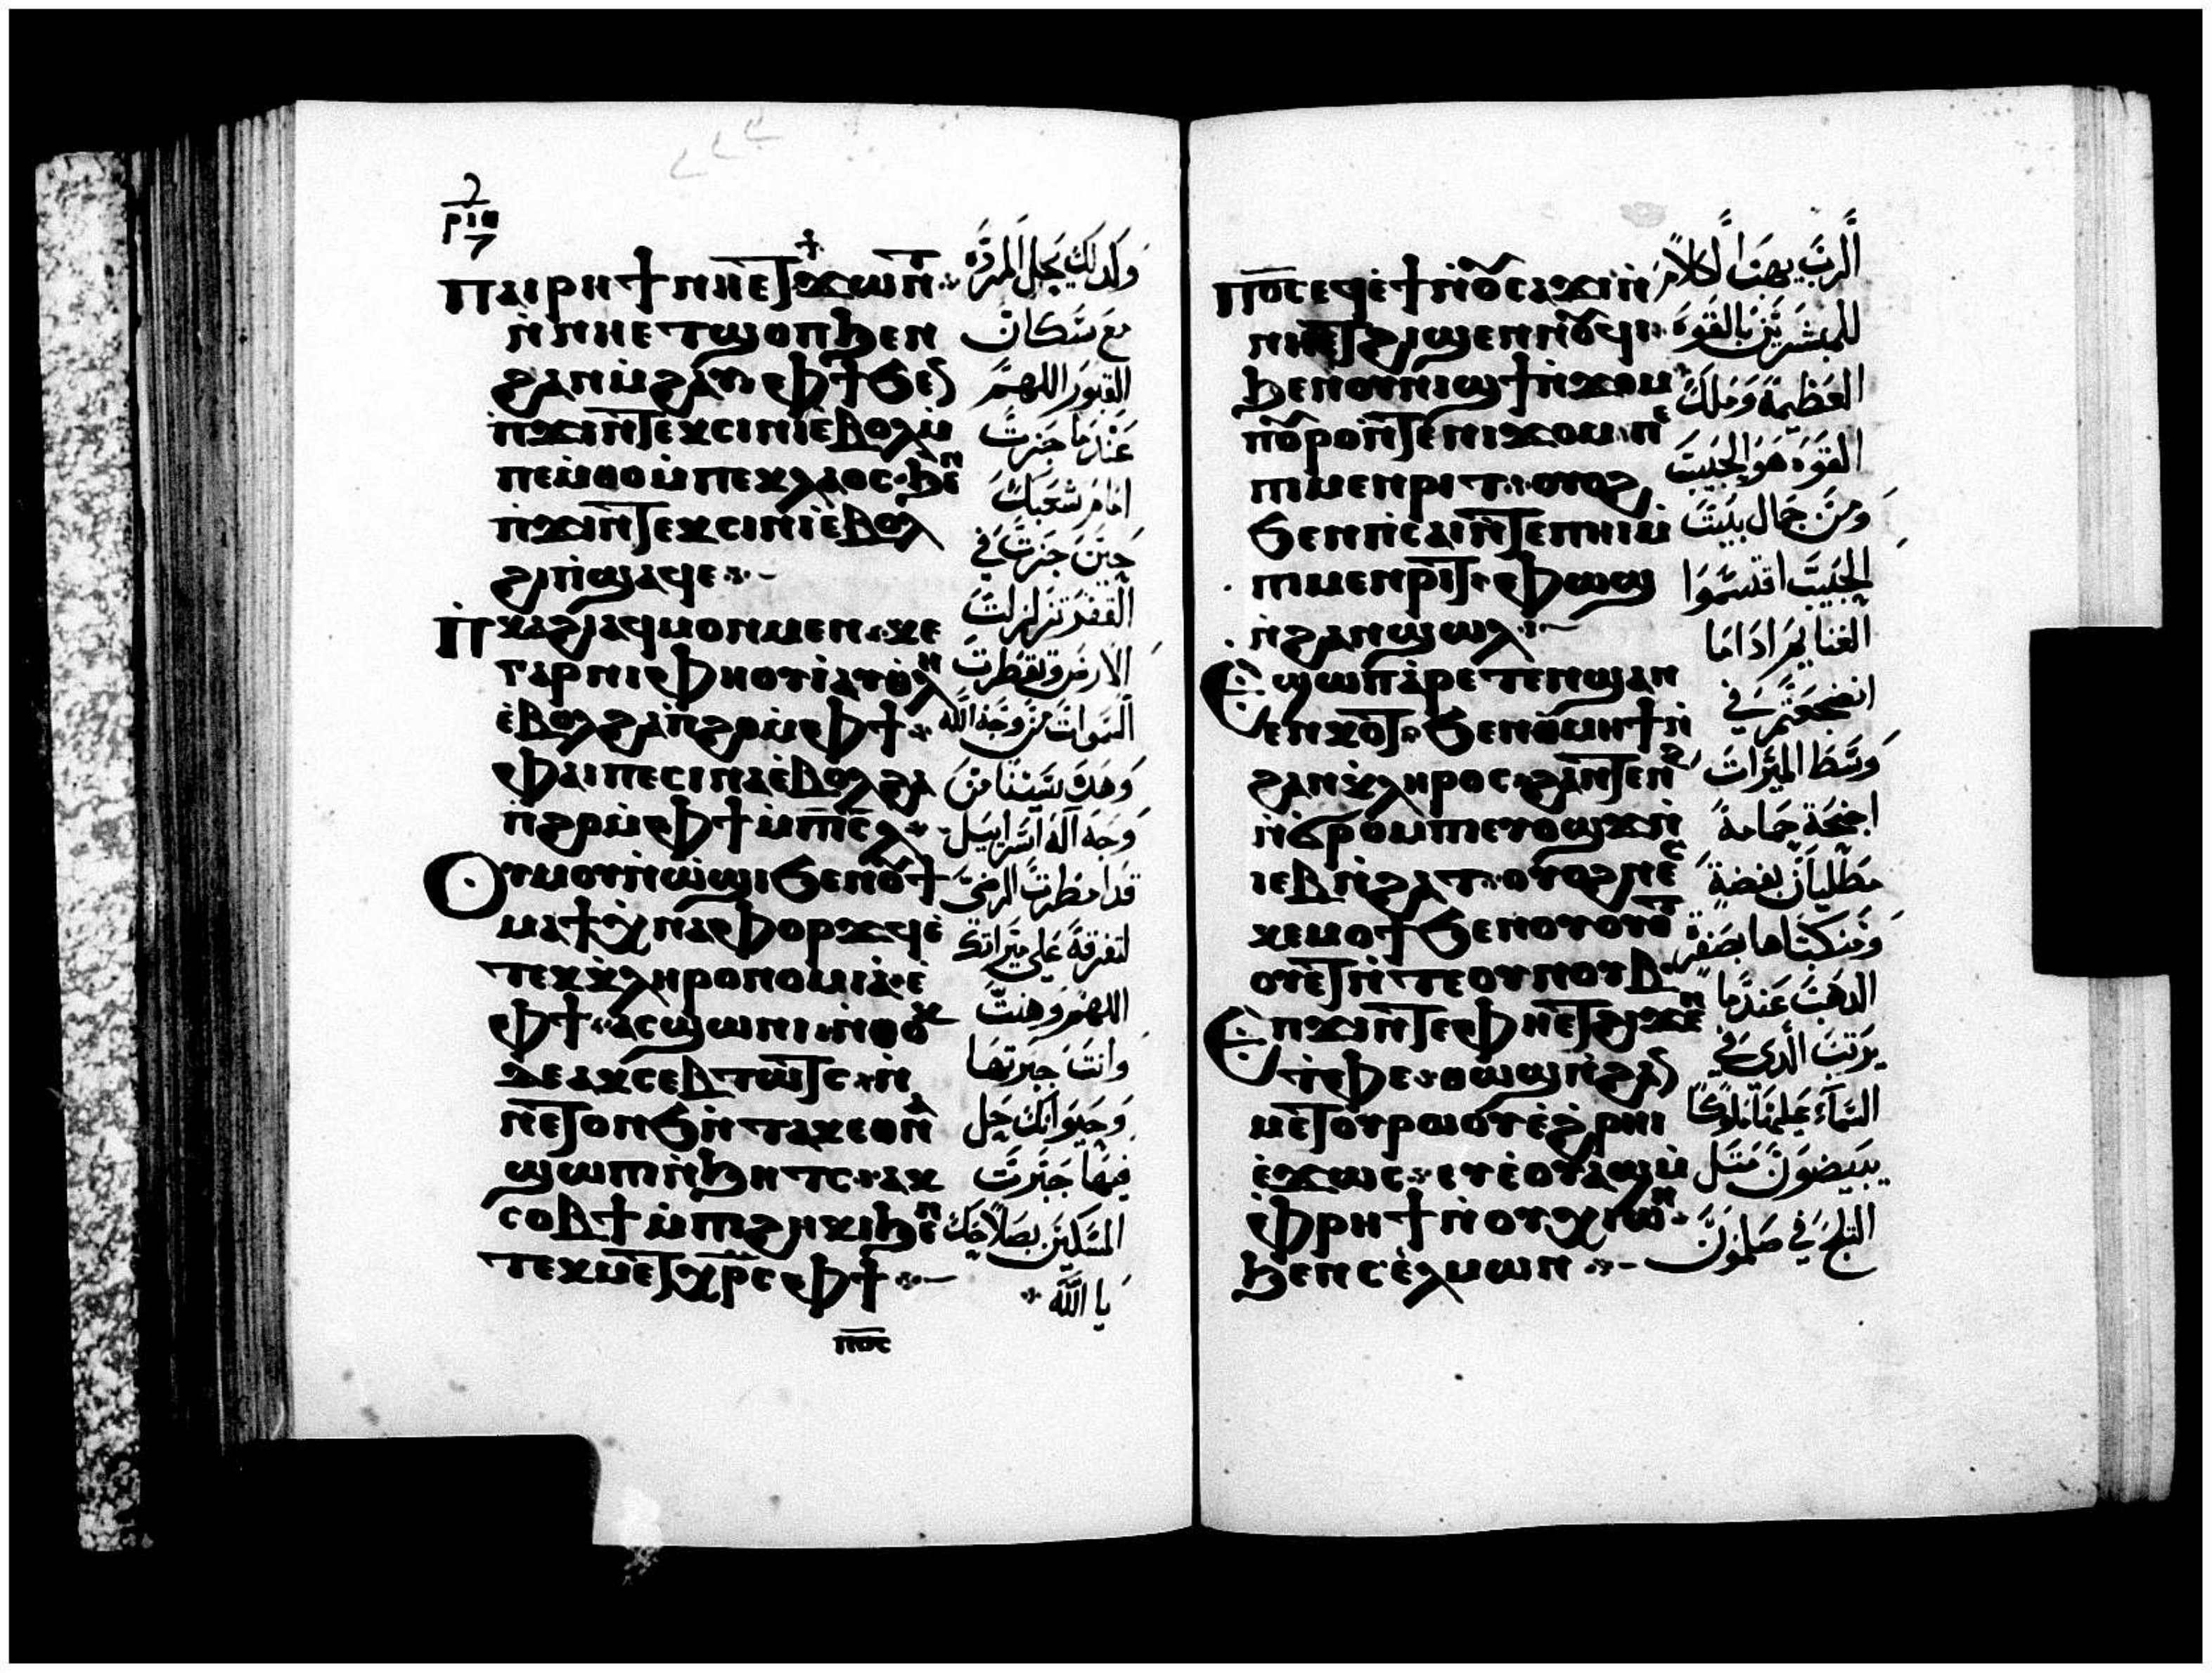 ⲡⲁⲓⲣⲏϯ ⲛⲏⲉⲧϫⲱⲛⲧ
ⲛⲛⲏⲉⲧϣⲟⲡ ϧⲉⲛ
ϩⲁⲛⲙ̀ϩⲁⲩ ⲫϯ ϧⲉⲛ
ⲡϫⲓⲛⲧⲉⲕⲥⲓⲛⲓ ⲉⲃⲟⲗ ⲙ̀
ⲡⲉⲙⲑⲟ ⲙ̀ⲡⲉⲕⲗⲁⲟⲥ ϧⲉⲛ
ⲡϫⲓⲛⲧⲉⲕⲥⲓⲛⲓ ⲉ̀ⲃⲟⲗ
ϩⲓ ⲡ̀ϣⲁϥⲉ
ⲡⲕⲁϩⲓ ⲁϥⲙⲟⲛⲙⲉⲛ ⲕⲉ
ⲅⲁⲣ ⲛⲓⲫⲏⲟⲩⲓ̀ ⲁⲩ
ⲉ̀ⲃⲟⲗ ϩⲁ ⲡ̀ϩⲟ ⲙ̀ⲫϯ
ⲫⲁⲓ ⲡⲉ ⲥⲓⲛⲁ ⲉ̀ⲃⲟⲗ ϩⲁ
ⲡ̀ϩⲟ ⲙ̀ⲫϯ ⲙ̀ⲡⲓⲥⲗ
ⲟⲩⲙⲟⲩⲛϩⲱⲟⲩ ϧⲉⲛ ⲡⲟⲩϯ
ⲙⲁϯ ⲭⲛⲁⲫⲟⲣϫϥ ⲉ̀
ⲧⲉⲕⲕⲗⲏⲣⲟⲛⲟⲙⲓⲁ
ⲫϯ ⲁⲥϣⲱⲛⲓ ⲛ̀ⲑⲟⲕ
ⲇⲉ ⲁⲕⲥⲉⲃⲧⲱⲧⲥ
ⲛⲉⲧⲟⲛϧ ⲛ̀ⲧⲁⲕ ⲉⲩⲛⲁ
ϣⲱⲡⲓ ⲛ̀ϧⲏⲧⲥ ⲁⲕ
ⲥⲟⲃϯ ⲙ̀ⲡⲓϩⲏⲕⲓ ϧⲉⲛ
ⲧⲉⲕⲙⲉⲧⲭⲣⲥ ⲫϯ
ⲡⲟ̅ⲥ̅
وكذلك يجل المردة
مع سكان
القبور اللهم
عندما جزت
امام شعبك
حين جزت في
القفر تزلزلت
الارض وتقطرت
السموات من وجه الله
وهذا سينا من
وجه اله اسراييل
قدامطرت الرضي
لتفرقة علي ميراثك
اللهم وهنت
وانت جبرتها
وحيوانك يحل
فيها جبرت
المسكين بصلاحك
يا الله
ⲡⲟ̅ⲥ̅ ⲉϥⲉ̀ϯ ⲛ̀ⲟⲩⲥⲁϫⲓ ⲛ̀
ⲛⲏⲉⲧϩⲓϣⲉⲛⲛⲟⲩϥⲓ
ϧⲉⲛ ⲟⲩⲛⲓϣϯ ⲛ̀ϫⲟⲙ
ⲡⲟⲩⲣⲟ ⲛ̀ⲧⲉ ⲛⲓϫⲟⲙ ⲡⲉ
ⲡⲓⲙⲉⲛⲣⲓⲧ ⲟⲩⲟϩ
ϧⲉⲛ ⲡ̀ⲥⲁⲓ ⲛ̀ⲧⲉ ⲡⲏⲓ ⲙ̀
ⲡⲓⲙⲉⲛⲣⲓⲧ ⲫⲱϣ
ⲛ̀ϩⲁⲛϣⲱⲗ
ⲉϣⲱⲡ ⲁⲣⲉⲧⲉⲛϣⲁⲛ
ⲉⲛⲕⲟⲧ ϧⲉⲛ ⲑⲙⲏϯ ⲛ̀
ϩⲁⲛⲕⲗⲏⲣⲟⲥ ϩⲁⲛⲧⲉⲛϩ
ⲛ̀ϭⲣⲟⲙⲡⲓ ⲉⲩⲟϣϫ ⲛ̀
ⲓⲉⲃ ⲛ̀ϩⲁⲧ ⲟⲩⲟϩ ⲛⲉⲥ
ⲕⲉⲙⲟϯ ϧⲉⲛ ⲟⲩⲟⲩⲟⲧ
ⲟⲩⲉⲧ ⲛ̀ⲧⲉ ⲟⲩⲛⲟⲩⲃ
ⲉⲡϫⲓⲛⲧⲉ ⲫⲏⲉⲧϩⲓϫⲉⲛ
ⲧⲫⲉ ⲑⲱϣ ⲛ̀ϩⲁⲛ
ⲙⲉⲧⲟⲩⲣⲱⲟⲩ ⲉ̀ϩⲣⲏⲓ
ⲉ̀ϫⲱⲥ ⲉⲩⲉ̀ⲟⲩⲃⲁϣ ⲙ̀
ⲫⲣⲏϯ ⲛ̀ⲟⲩⲭⲓⲱⲛ
ϧⲉⲛ ⲥⲉⲗⲙⲱⲛ
الرب يهب كلاما
للمبشرين بالقوة
العظيمة وملك
القوة هو الحبيب
ومن جمال بيت
الحبيب اقتسموا
الغنايم اذا ما
انضجعتم في
وسط الميراث
اجنحة حمامة
مطليان بفضة
ومنكباها بصفرة
الذهب عندما
يرتب الذي في
السماء عليها ملوكا
يبيضون مثل
الثلج في صلمون